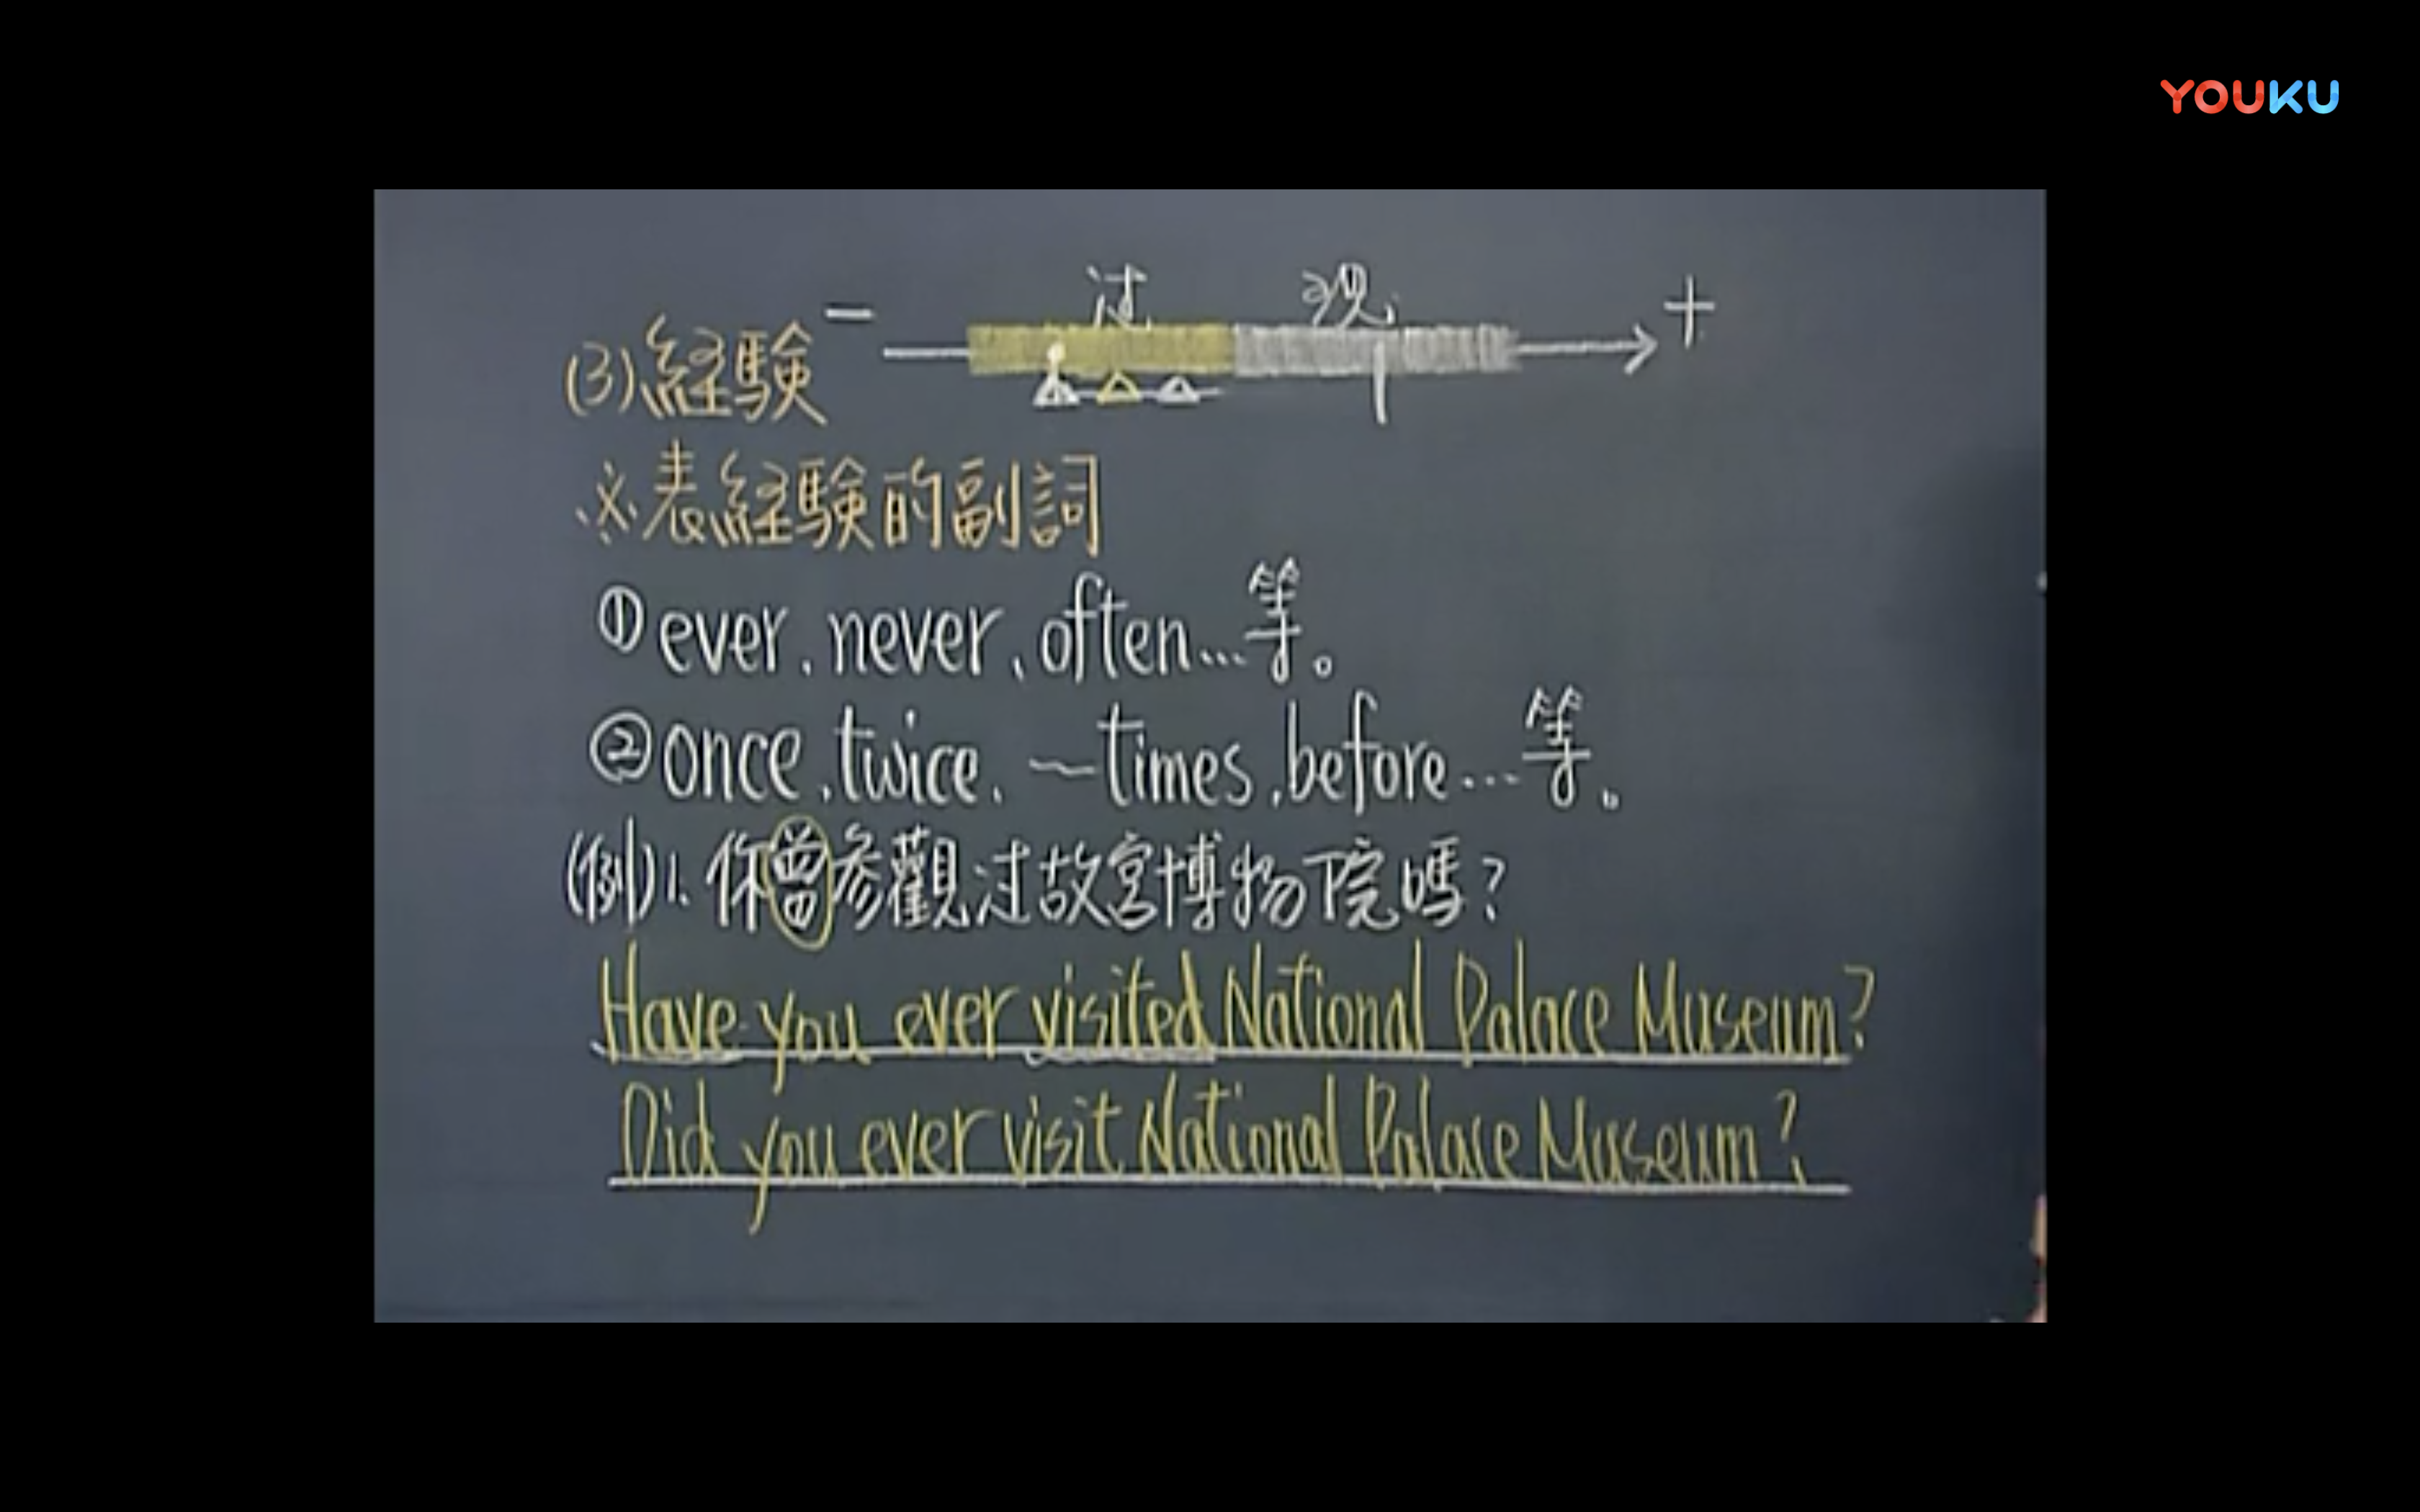 YOUKU
过 现
(3)経験 − +
※表経験的副詞
①ever、never、often…等。
②once、twice、~times、before…等。
(例)1. 你曾参觀过故宮博物院嗎?
Have you ever visited National Palace Museum?
Did you ever visit National Palace Museum?